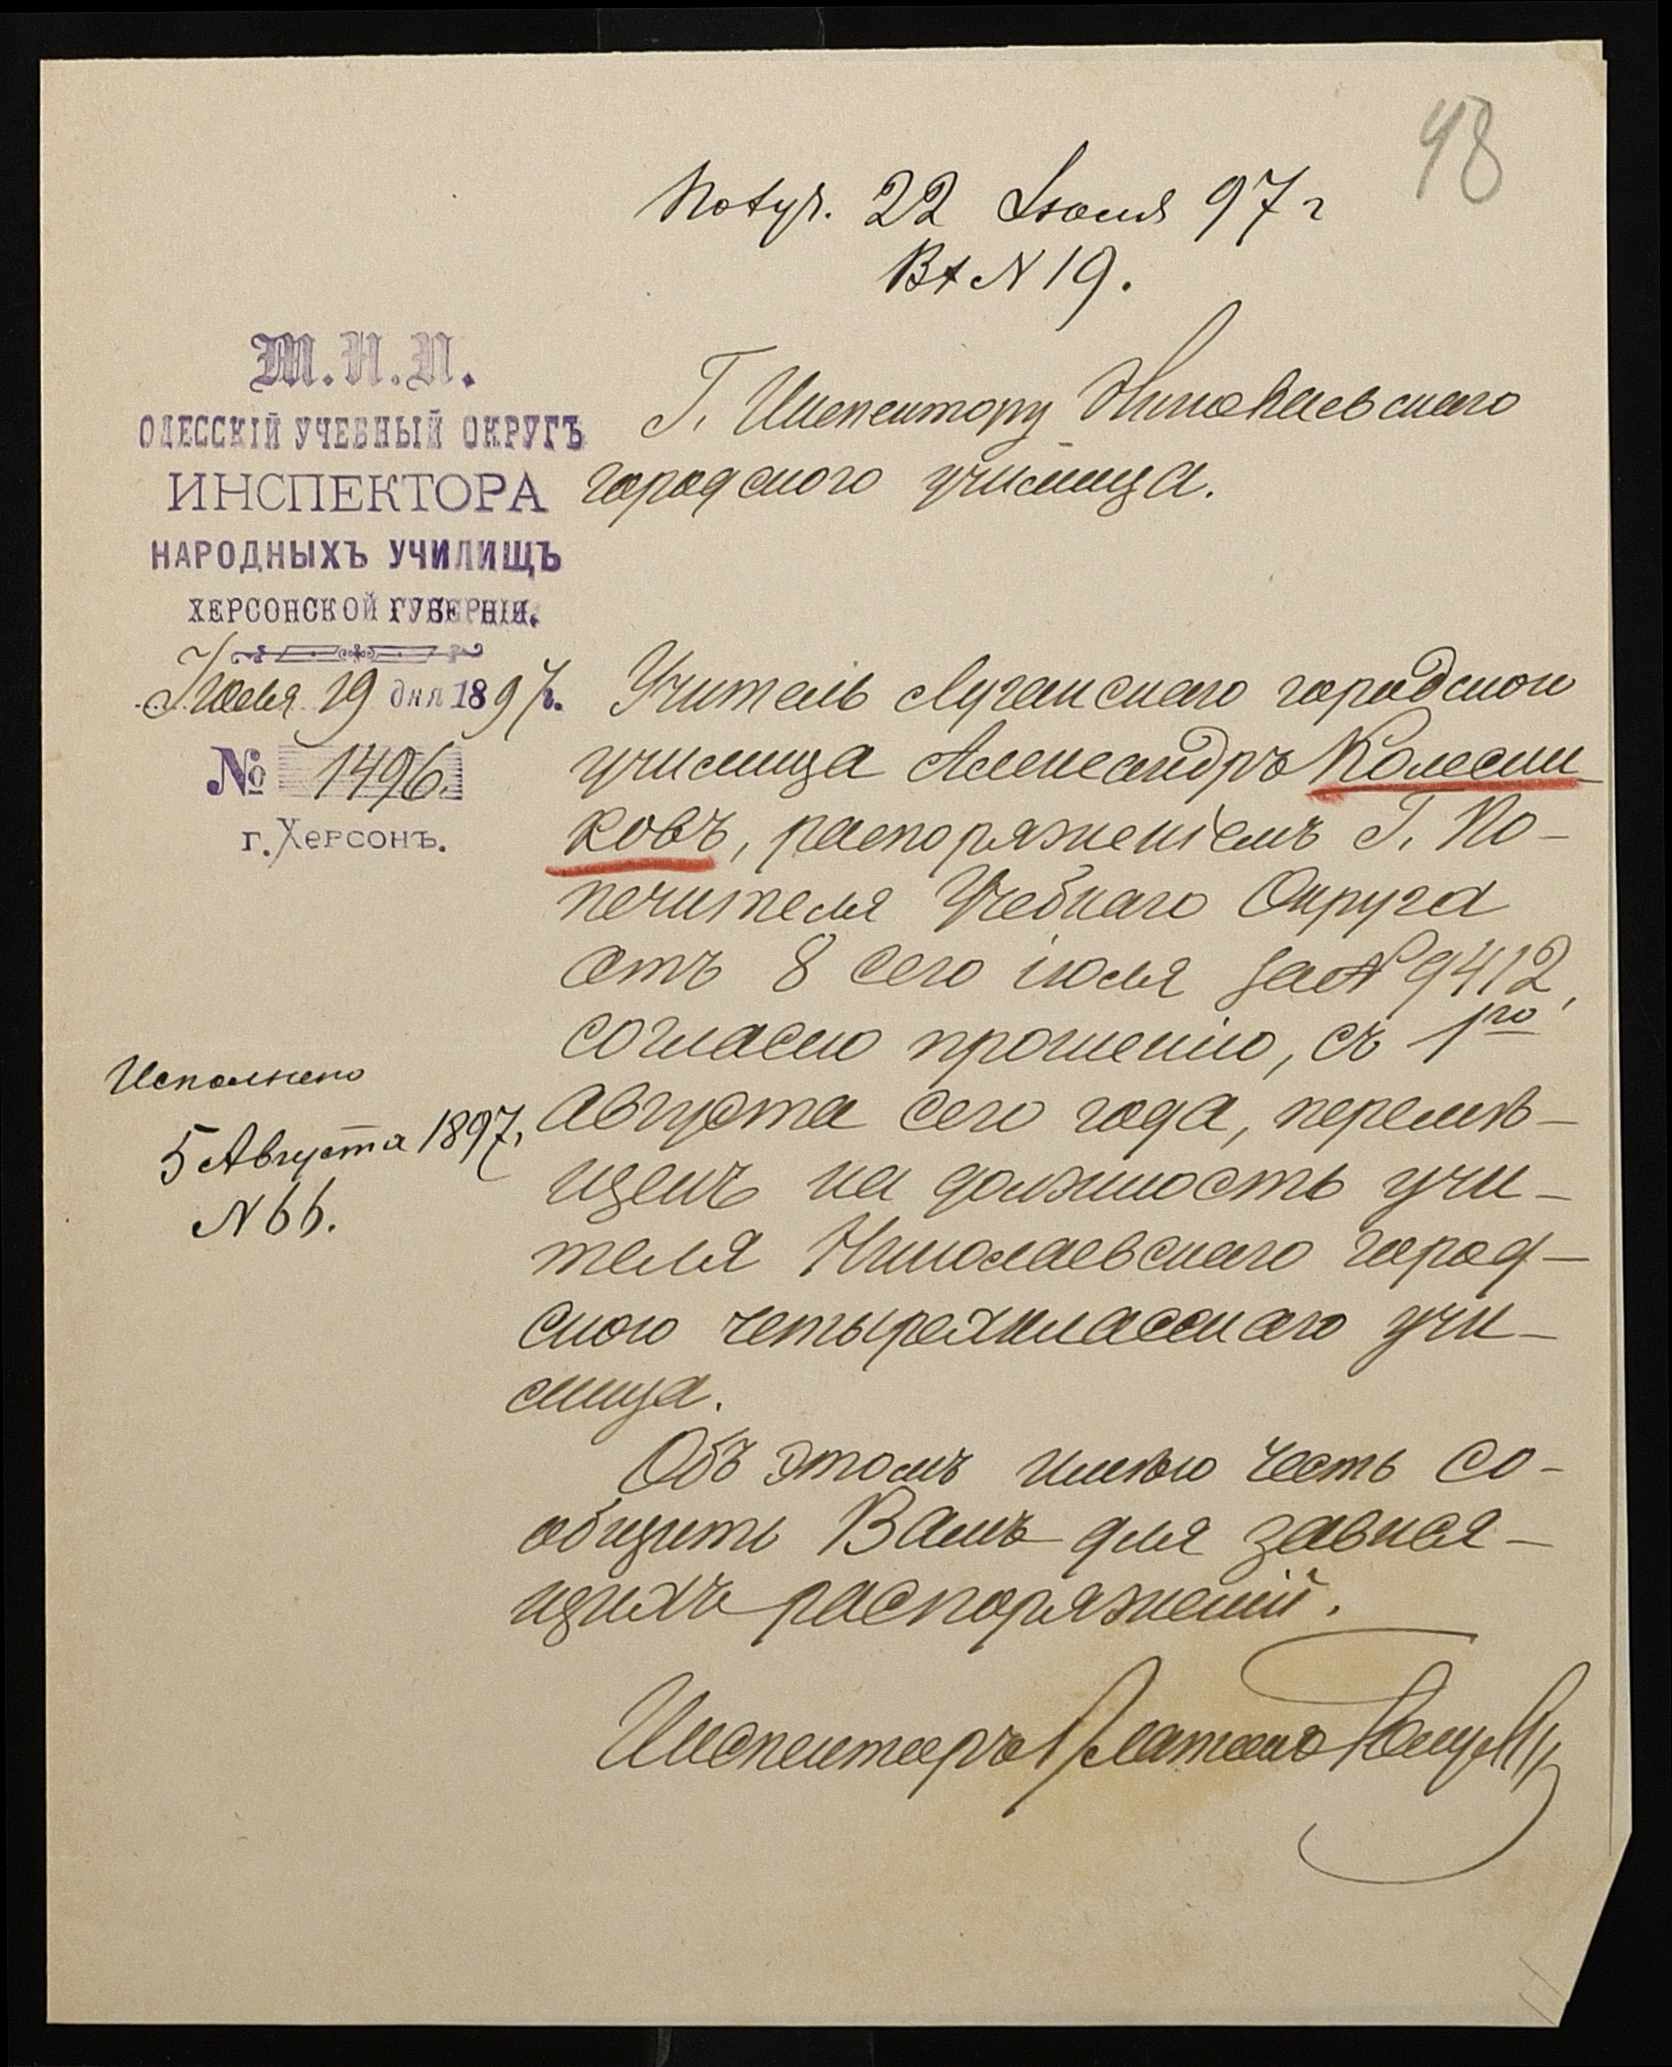 48
Получ. 22 Июля 97 г
Вх № 19.
М.Н.П.
ОДЕССКІЙ УЧЕБНЫЙ ОКРУГЪ
ИНСПЕКТОРА
НАРОДНЫХЪ УЧИЛИЩЪ
ХЕРСОНСКОЙ ГУБЕРНІИ.
Іюля 19 дня 1897г.
№ 1496.
г. Херсонъ.
Исполнено
5 Августа 1897,
№ 66.
Г. Инспектору Николаевскаго
городского училища.
Учитель Луганскаго городского
училища Александръ Колесни-
ковъ, распоряженіемъ Г. По-
печителя Учебнаго Округа
отъ 8 сего іюля за № 9412,
согласно прошенію, съ 1го
августа сего года, перемѣ-
щенъ на должность учи-
теля Николаевскаго город-
ского четырехкласснаго учи-
лища.
Объ этомъ имѣю честь со-
общить Вамъ для завися-
щихъ распоряженій.
Инспекторъ